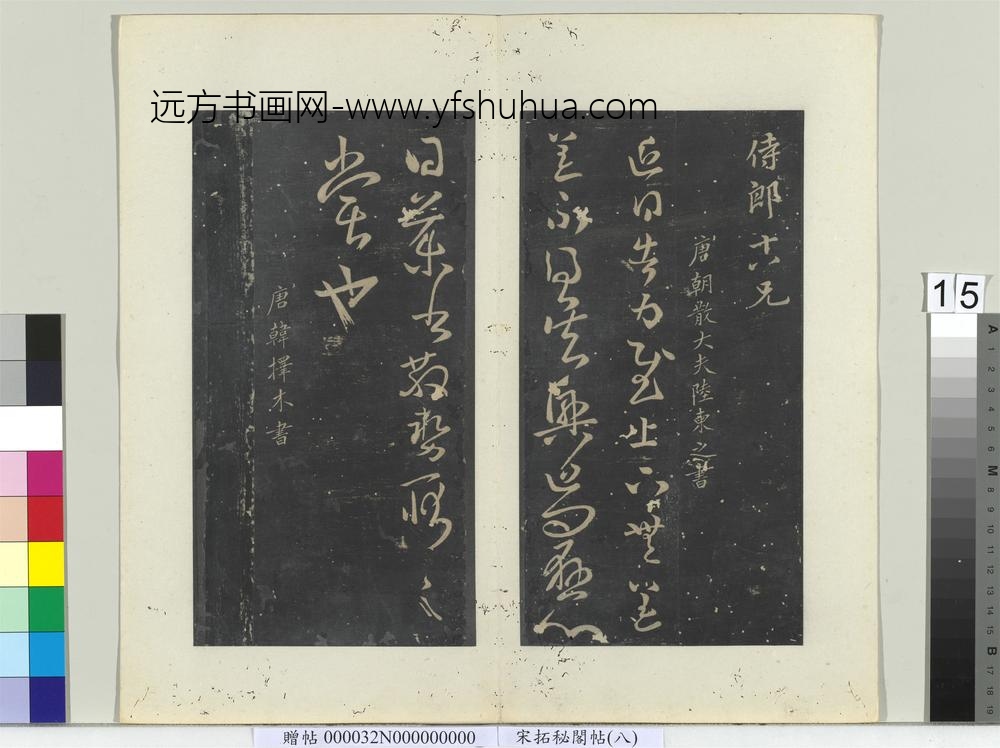 远方书画网-www.yfshuhua.com
侍郎十六兄
唐朝散大夫陸柬之書
近日告力至上下無恙
不得吳興近問懸心
之
常也
唐韓擇木書
15
A
1
2
3
4
5
6
M
8
9
10
11
12
13
14
15
B
17
18
19
贈帖 000032N000000000
宋拓秘閣帖(八)